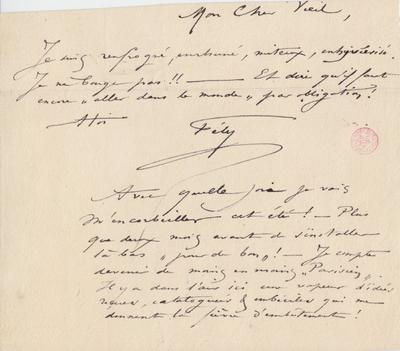 Mon Cher Vieil,
Je suis renfrogné, enrhumé, miteux,
Je ne bouge pas !! — Et dire qu'il faut
encore "aller dans le monde" par obligation !
à toi
Fély
Avec quelle joie je vais
m'encorbeiller cet été ! — Plus
que deux mois avant de s'installer
là bas "pour de bon" ! — Je compte
devenir de moins en moins "Parisien".
Il y a dans l'air ici une vapeur d'idées
& imbéciles qui me
donnent la fièvre d'embêtement !